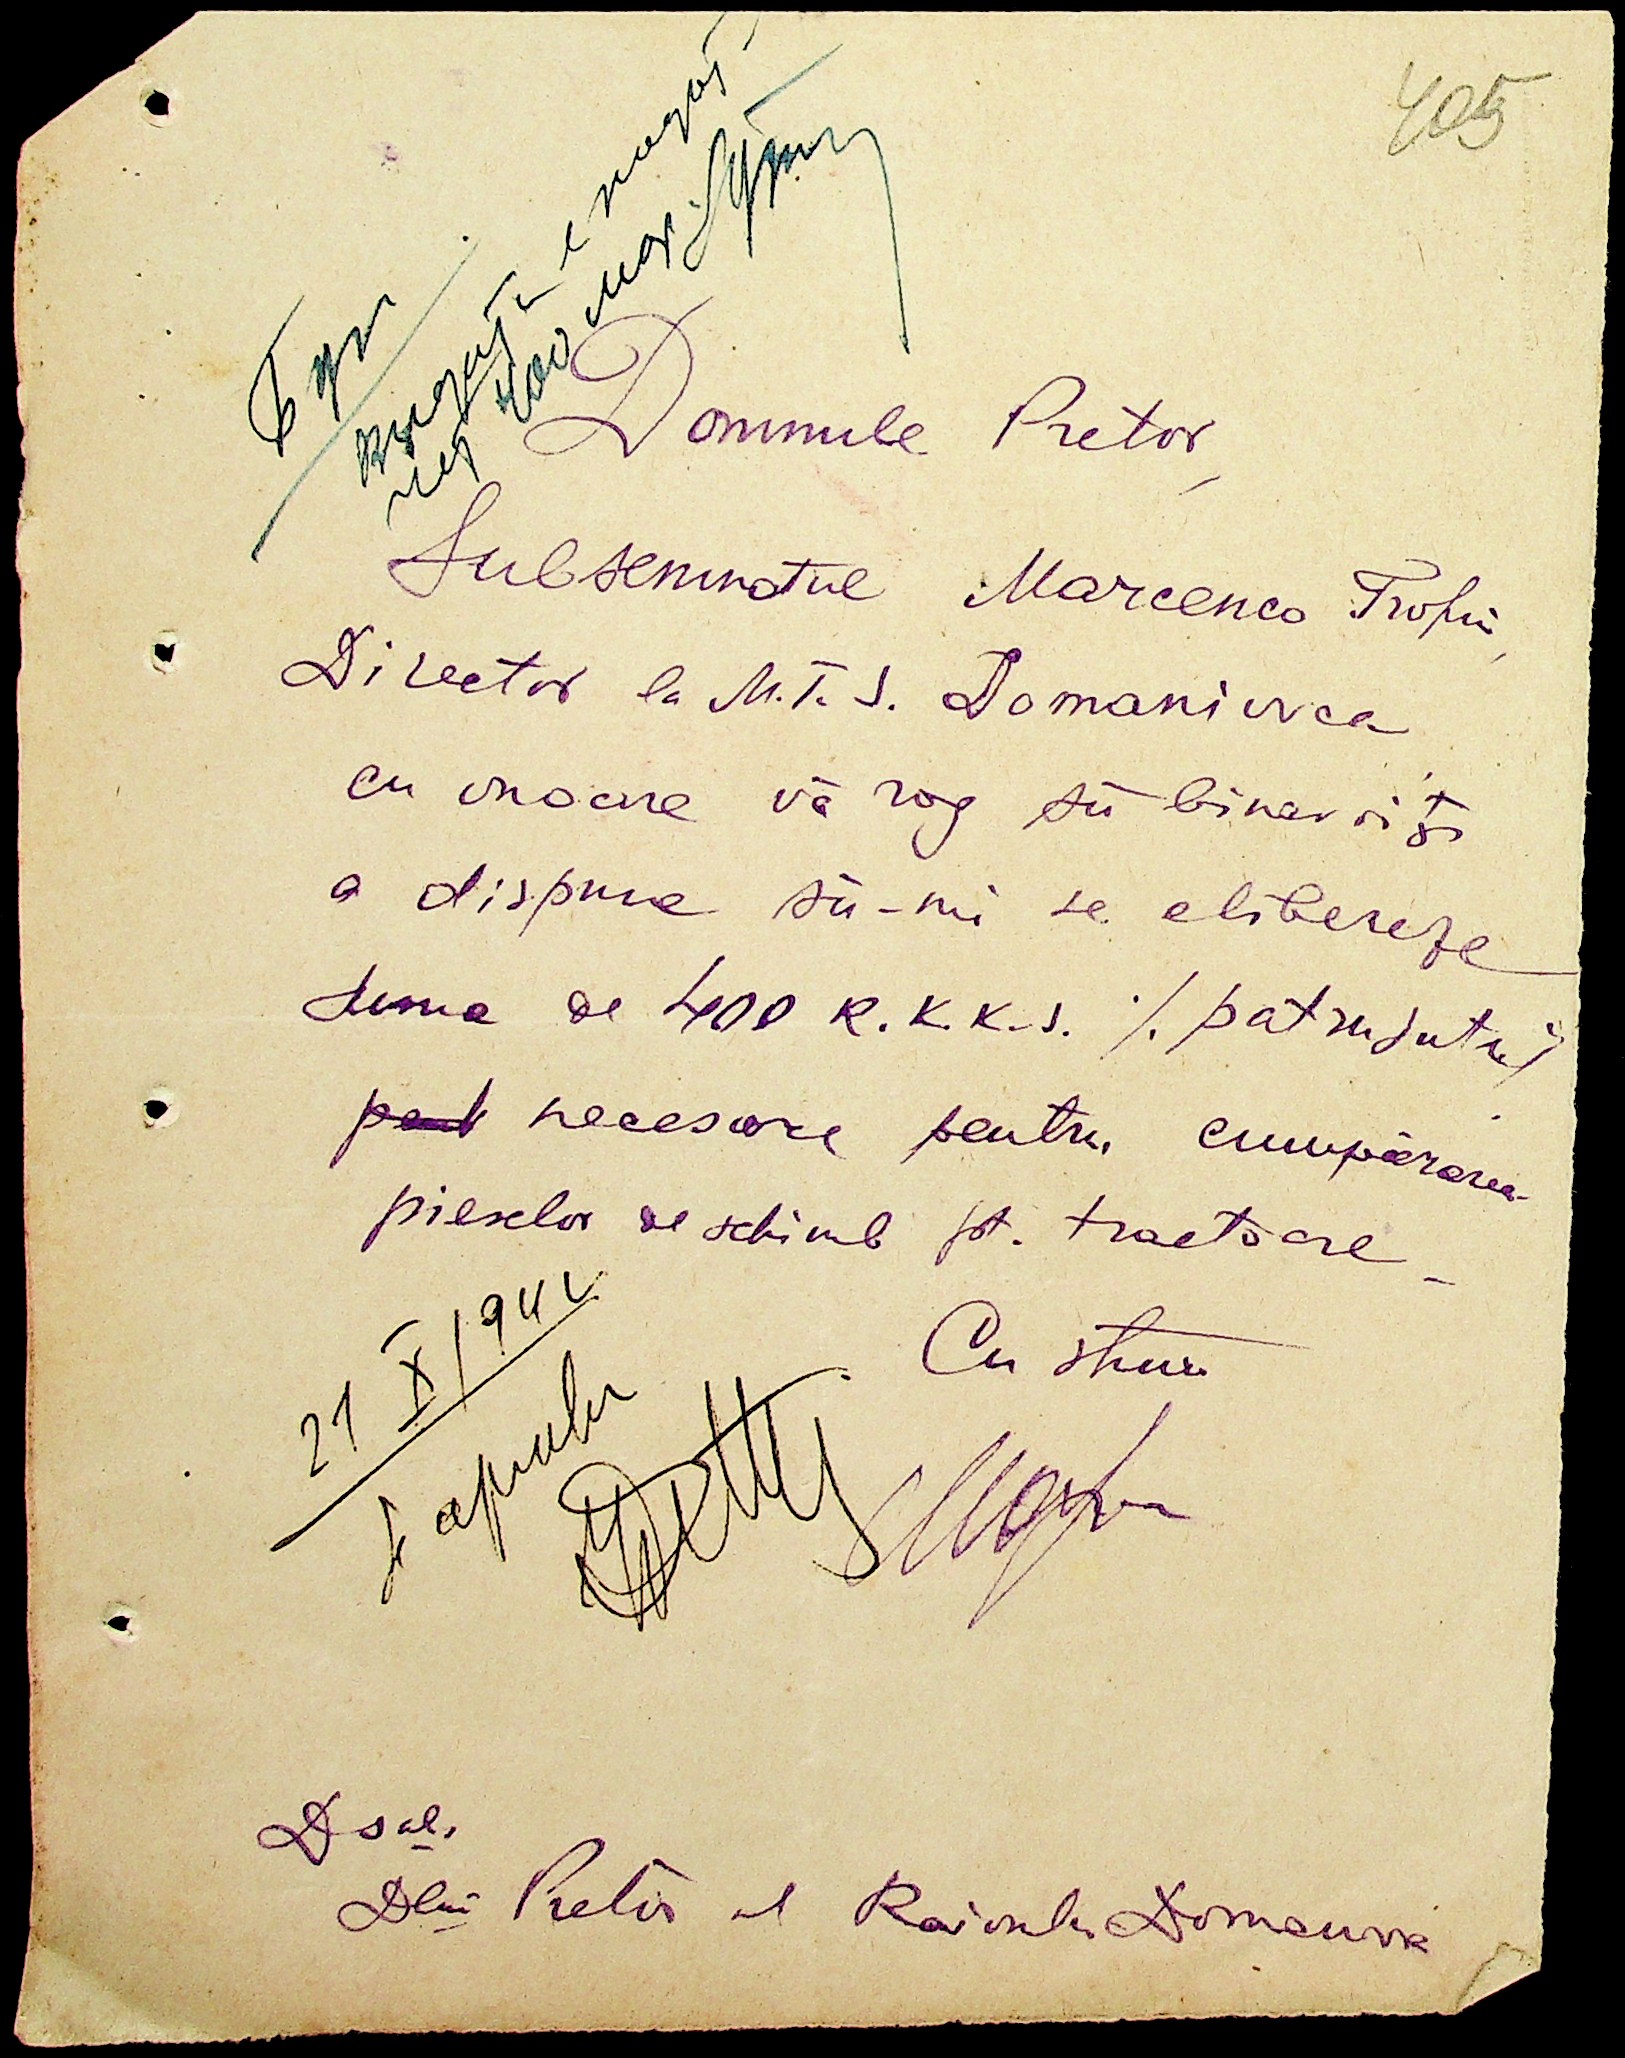 405
Domnule Pretor,
Subsemnatul Marcenco Trofin,
Director la M.T.S. Domaniovca
cu onoare vă rog să binevoiți
a dispune să-mi se elibereze
suma de 400 R.K.K.S. /. patrusute /
necesare pentru cumpărarea
pieselor de schimb pt. tractoare
Cu stimă
21 X/1942
Se aprobă
Dsale
Dlui Pretor al Raionului Domaniovca